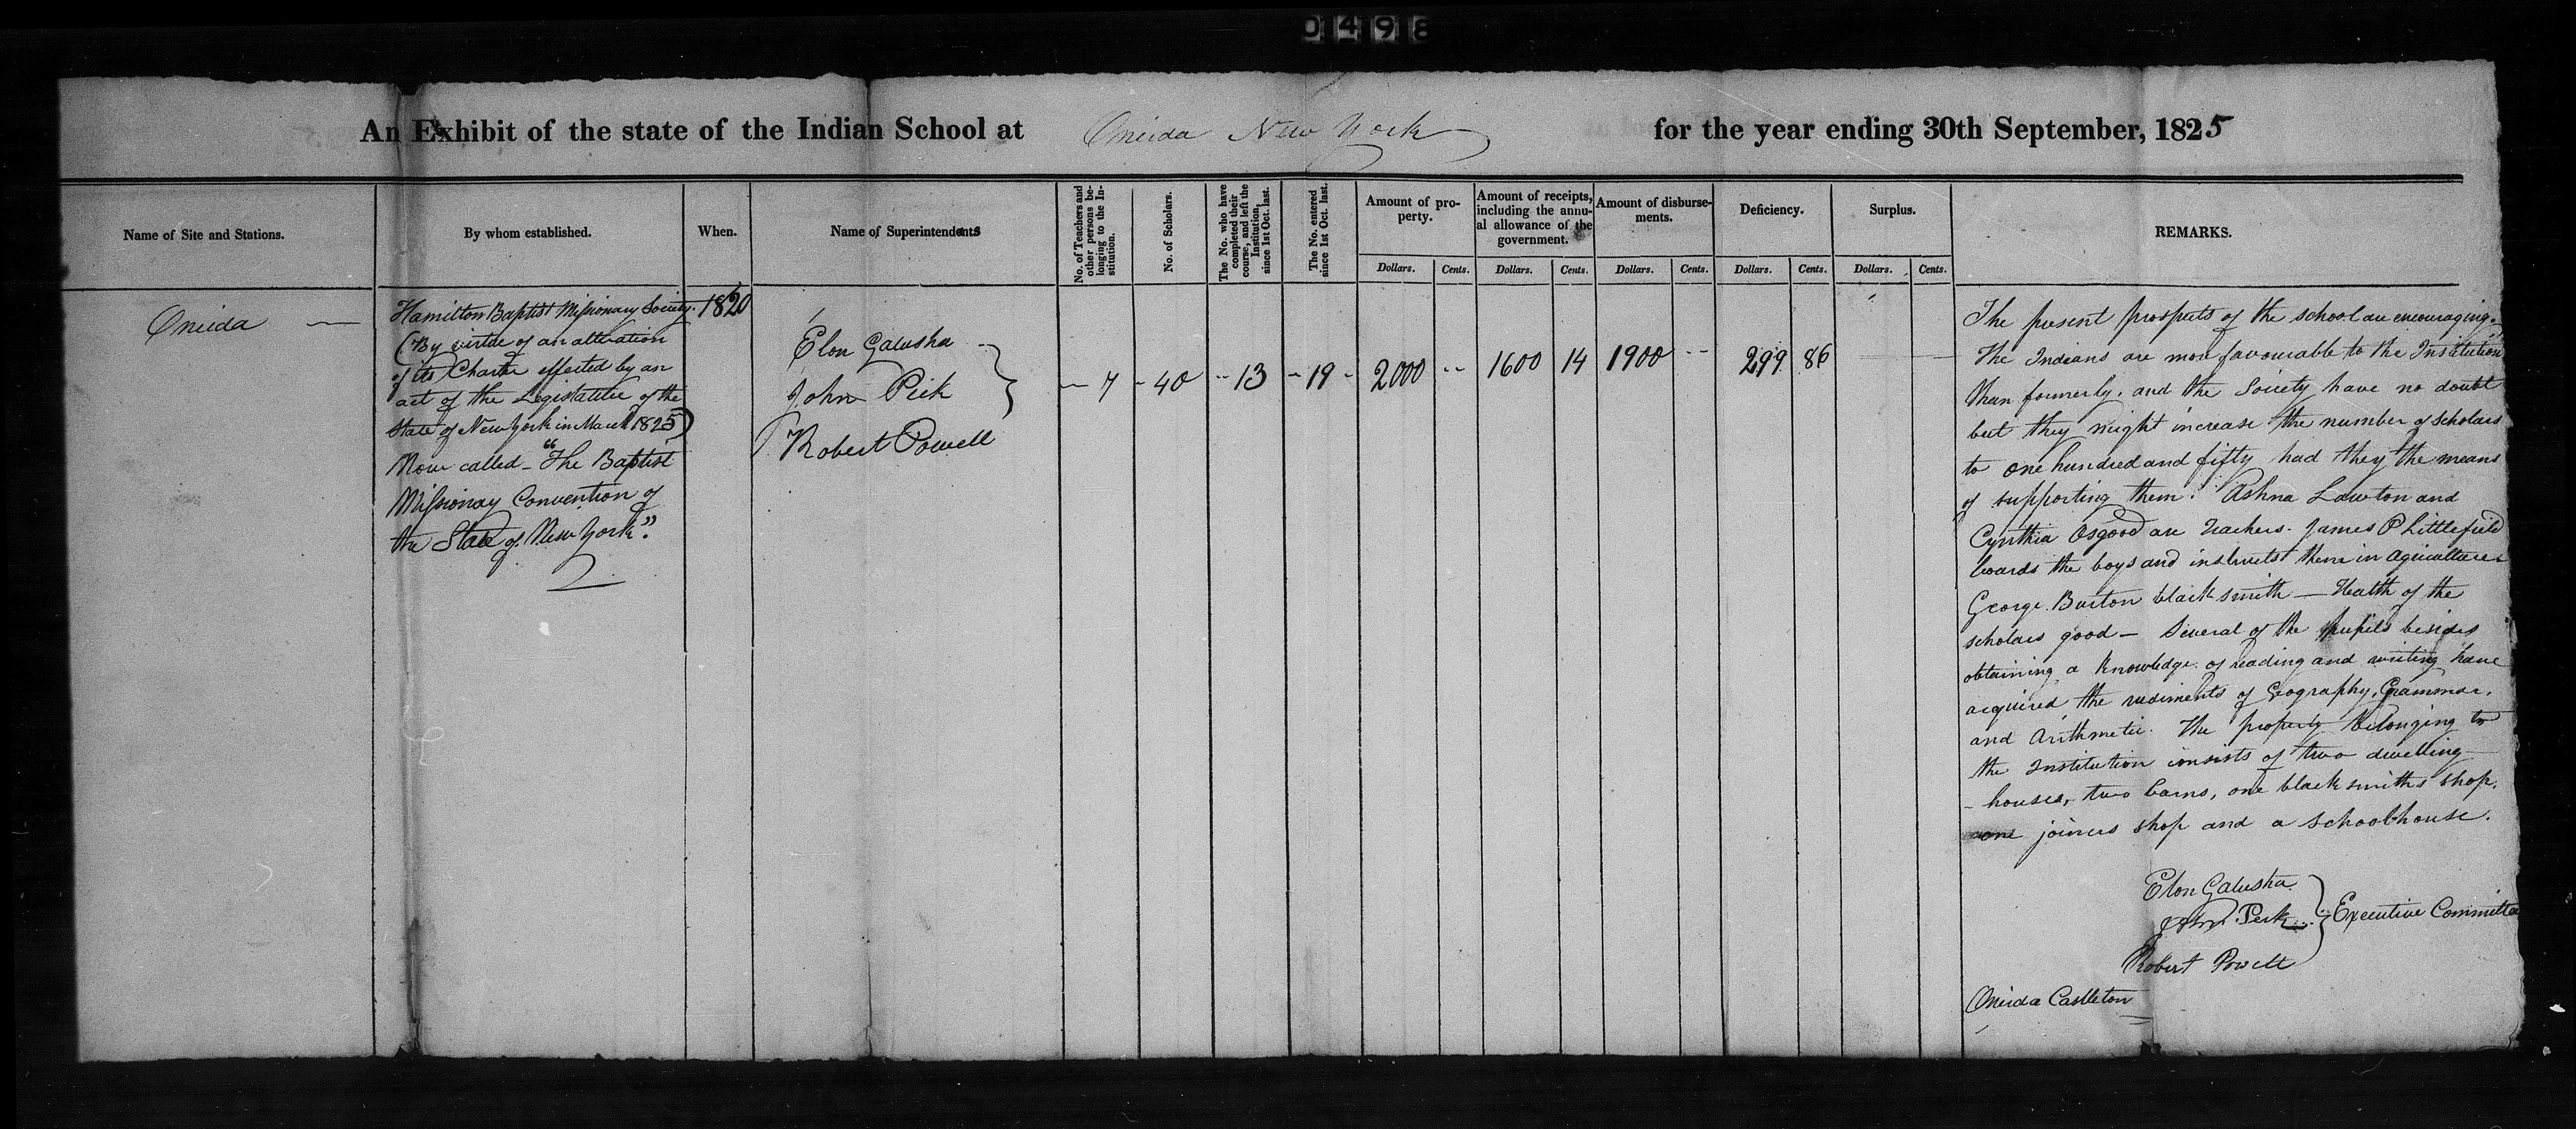 0498
An Exhibit of the state of the Indian School at Oneida New York for the year ending 30th September, 1825
Name of Site and Stations.
By whom established.
When.
Name of Superintendents
No. of Teachers and other persons belonging to the Institution.
No. of Scholars.
The No. who have completed their course, and left the Institution, since 1st Oct. last.
The No. entered since 1st Oct. last.
Amount of property.
Amount of receipts, including the annual allowance of the government.
Amount of disbursements.
Deficiency.
Surplus.
REMARKS.
Dollars. Cents. Dollars. Cents. Dollars. Cents. Dollars. Cents. Dollars. Cents.
Oneida
Hamilton Baptist Missionary Society.
(By virtue of an alteration
of its Charter effected by an
act of the Legislature of the
State of New York in March 1825)
Now called - "The Baptist
Missionary Convention of
the State of New York."
1820
Elon Galusha
John Peck
Robert Powell
7 40 13 19 2000 -- 1600 14 1900 -- 299 86
The present prospects of the school are encouraging.
The Indians are more favourable to the Institution
than formerly, and the Society have no doubt
but they might increase the number of scholars
to one hundred and fifty had they the means
of supporting them. Ashna Lawton and
Cynthia Osgood are teachers. James P Littlefield
boards the boys and instructs them in agriculture
George Burton blacksmith — Health of the
scholars good — Several of the pupils besides
obtaining a knowledge of reading and writing have
acquired the rudiments of Geography, Grammar,
and Arithmetic. The property belonging to
the Institution consists of two dwelling
- houses, two barns, one blacksmiths shop,
one joiners shop and a schoolhouse.
Elon Galusha
John Peck
Robert Powell
Executive Committee
Oneida Castleton